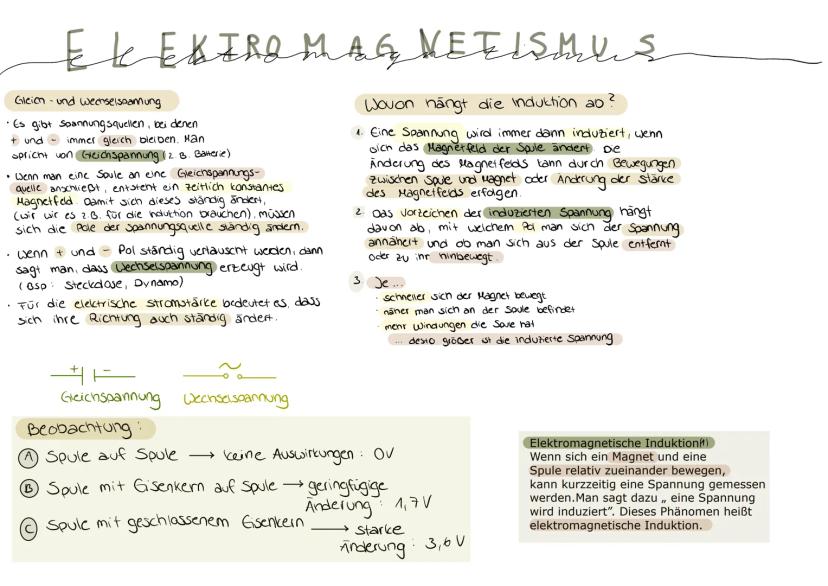 ELEKTROMAGNETISMUS
elektromagnetismus
Gleich- und Wechselspannung
· Es gibt Spannungsquellen, bei denen
+ und - immer gleich bleiben. Man
spricht von Gleichspannung (z.B. Batterie)
· Wenn man eine Spule an eine Gleichspannungs-
quelle anschließt, entsteht ein zeitlich konstantes
Magnetfeld. Damit sich dieses ständig ändert,
(wir wir es z.B. für die Induktion brauchen), müssen
sich die Pole der Spannungsquelle ständig ändern.
· Wenn + und - Pol ständig vertauscht werden, dann
sagt man, dass Wechselspannung erzeugt wird.
(Bsp: Steckdose, Dynamo)
· Für die elektrische Stromstärke bedeutet es, dass
sich ihre Richtung auch ständig ändert.
+ -
Gleichspannung Wechselspannung
Wovon hängt die Induktion ab?
1. Eine Spannung wird immer dann induziert, wenn
sich das Magnetfeld der Spule ändert. Die
Änderung des Magnetfelds kann durch Bewegungen
zwischen Spule und Magnet oder Änderung der Stärke
des Magnetfelds erfolgen.
2. Das Vorzeichen der induzierten Spannung hängt
davon ab, mit welchem Pol man sich der Spannung
annähert und ob man sich aus der Spule entfernt
oder zu ihr hinbewegt.
3. Je...
· schneller sich der Magnet bewegt
· näher man sich an der Spule befindet
· mehr Windungen die Spule hat
... desto größer ist die induzierte Spannung
Beobachtung:
A Spule auf Spule → keine Auswirkungen: 0V
B Spule mit Eisenkern auf Spule → geringfügige
Änderung: 1,7 V
C Spule mit geschlossenem Eisenkern → starke
Änderung: 3,6 V
Elektromagnetische Induktion
Wenn sich ein Magnet und eine
Spule relativ zueinander bewegen,
kann kurzzeitig eine Spannung gemessen
werden.Man sagt dazu „ eine Spannung
wird induziert". Dieses Phänomen heißt
elektromagnetische Induktion.